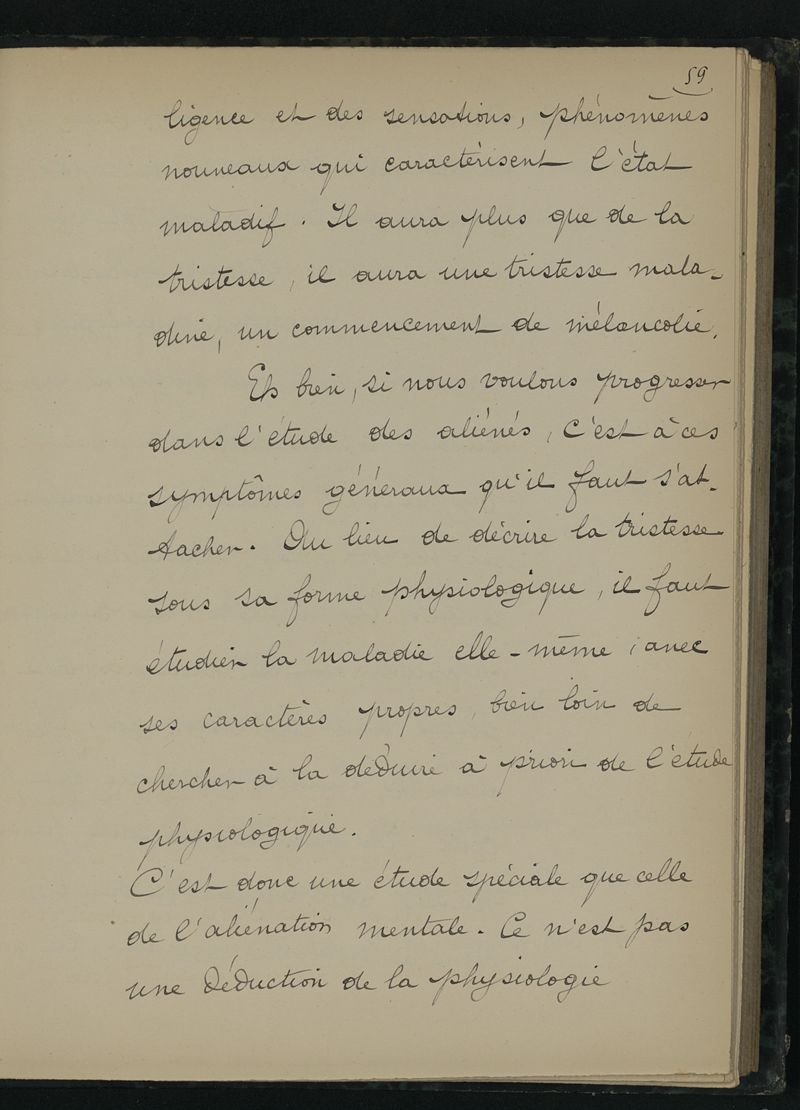 59
ligence et des sensations, phénomènes
nouveaux qui caractérisent l'état
maladif. Il aura plus que de la
tristesse, il aura une tristesse mala-
dive, un commencement de mélancolie.
Eh bien, si nous voulons progresser
dans l'étude des aliénés, c'est à ces
symptômes généraux qu'il faut s'at-
tacher. Au lieu de décrire la tristesse
sous sa forme physiologique, il faut
étudier la maladie elle-même, avec
ses caractères propres, bien loin de
chercher à la déduire à priori de l'étude
physiologique.
C'est donc une étude spéciale que celle
de l'aliénation mentale. Ce n'est pas
une déduction de la physiologie